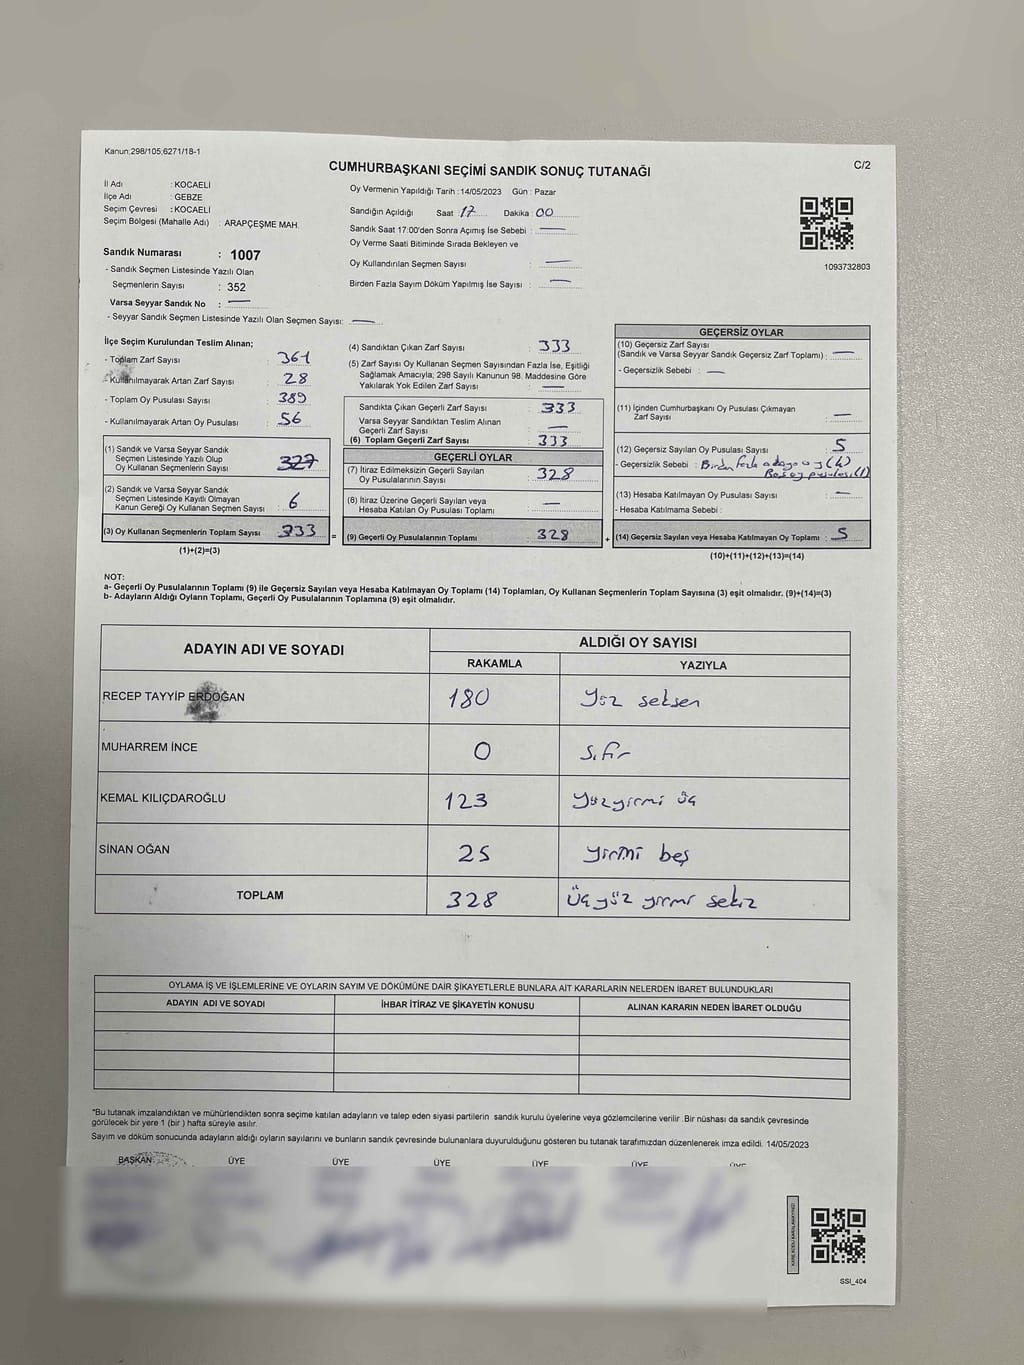 Kanun;298/105,6271/18-1
C/2
CUMHURBAŞKANI SEÇİMİ SANDIK SONUÇ TUTANAĞI
İl Adı : KOCAELİ
İlçe Adı : GEBZE
Seçim Çevresi : KOCAELİ
Seçim Bölgesi (Mahalle Adı) : ARAPÇEŞME MAH.
Sandık Numarası : 1007
- Sandık Seçmen Listesinde Yazılı Olan
Seçmenlerin Sayısı : 352
Varsa Seyyar Sandık No : —
- Seyyar Sandık Seçmen Listesinde Yazılı Olan Seçmen Sayısı: —
Oy Vermenin Yapıldığı Tarih : 14/05/2023 Gün : Pazar
Sandığın Açıldığı Saat : 17 Dakika : 00
Sandık Saat 17:00'den Sonra Açımış İse Sebebi : —
Oy Verme Saati Bitiminde Sırada Bekleyen ve
Oy Kullandırılan Seçmen Sayısı : —
Birden Fazla Sayım Döküm Yapılmış İse Sayısı : —
1093732803
İlçe Seçim Kurulundan Teslim Alınan;
- Toplam Zarf Sayısı : 361
- Kullanılmayarak Artan Zarf Sayısı : 28
- Toplam Oy Pusulası Sayısı : 389
- Kullanılmayarak Artan Oy Pusulası : 56
(1) Sandık ve Varsa Seyyar Sandık
Seçmen Listesinde Yazılı Olup
Oy Kullanan Seçmenlerin Sayısı : 327
(2) Sandık ve Varsa Seyyar Sandık
Seçmen Listesinde Kayıtlı Olmayan
Kanun Gereği Oy Kullanan Seçmen Sayısı : 6
(3) Oy Kullanan Seçmenlerin Toplam Sayısı : 333 =
(1)+(2)=(3)
(4) Sandıktan Çıkan Zarf Sayısı : 333
(5) Zarf Sayısı Oy Kullanan Seçmen Sayısından Fazla İse, Eşitliği
Sağlamak Amacıyla; 298 Sayılı Kanunun 98. Maddesine Göre
Yakılarak Yok Edilen Zarf Sayısı : —
Sandıkta Çıkan Geçerli Zarf Sayısı : 333
Varsa Seyyar Sandıktan Teslim Alınan
Geçerli Zarf Sayısı : —
(6) Toplam Geçerli Zarf Sayısı : 333
GEÇERLİ OYLAR
(7) İtiraz Edilmeksizin Geçerli Sayılan
Oy Pusulalarının Sayısı : 328
(8) İtiraz Üzerine Geçerli Sayılan veya
Hesaba Katılan Oy Pusulası Toplamı : —
(9) Geçerli Oy Pusulalarının Toplamı : 328 +
GEÇERSİZ OYLAR
(10) Geçersiz Zarf Sayısı
(Sandık ve Varsa Seyyar Sandık Geçersiz Zarf Toplamı) : —
- Geçersizlik Sebebi : —
(11) İçinden Cumhurbaşkanı Oy Pusulası Çıkmayan
Zarf Sayısı : —
(12) Geçersiz Sayılan Oy Pusulası Sayısı : 5
- Geçersizlik Sebebi : Birden fazla adaya oy (4)
Boş oy pusulası (1)
(13) Hesaba Katılmayan Oy Pusulası Sayısı : —
- Hesaba Katılmama Sebebi :
(14) Geçersiz Sayılan veya Hesaba Katılmayan Oy Toplamı : 5
(10)+(11)+(12)+(13)=(14)
NOT:
a- Geçerli Oy Pusulalarının Toplamı (9) ile Geçersiz Sayılan veya Hesaba Katılmayan Oy Toplamı (14) Toplamları, Oy Kullanan Seçmenlerin Toplam Sayısına (3) eşit olmalıdır. (9)+(14)=(3)
b- Adayların Aldığı Oyların Toplamı, Geçerli Oy Pusulalarının Toplamına (9) eşit olmalıdır.
ADAYIN ADI VE SOYADI ALDIĞI OY SAYISI
RAKAMLA YAZIYLA
RECEP TAYYİP ERDOĞAN 180 Yüz seksen
MUHARREM İNCE 0 Sıfır
KEMAL KILIÇDAROĞLU 123 Yüzyirmi üç
SİNAN OĞAN 25 yirmi beş
TOPLAM 328 üçyüz yirmi sekiz
OYLAMA İŞ VE İŞLEMLERİNE VE OYLARIN SAYIM VE DÖKÜMÜNE DAİR ŞİKAYETLERLE BUNLARA AİT KARARLARIN NELERDEN İBARET BULUNDUKLARI
ADAYIN ADI VE SOYADI İHBAR İTİRAZ VE ŞİKAYETİN KONUSU ALINAN KARARIN NEDEN İBARET OLDUĞU
*Bu tutanak imzalandıktan ve mühürlendikten sonra seçime katılan adayların ve talep eden siyasi partilerin sandık kurulu üyelerine veya gözlemcilerine verilir .Bir nüshası da sandık çevresinde
görülecek bir yere 1 (bir ) hafta süreyle asılır.
Sayım ve döküm sonucunda adayların aldığı oyların sayılarını ve bunların sandık çevresinde bulunanlara duyurulduğunu gösteren bu tutanak tarafımızdan düzenlenerek imza edildi. 14/05/2023
BAŞKAN ÜYE ÜYE ÜYE ÜYE ÜYE ÜYE
KARE KODU KARALAMAYINIZ!
SSI_404